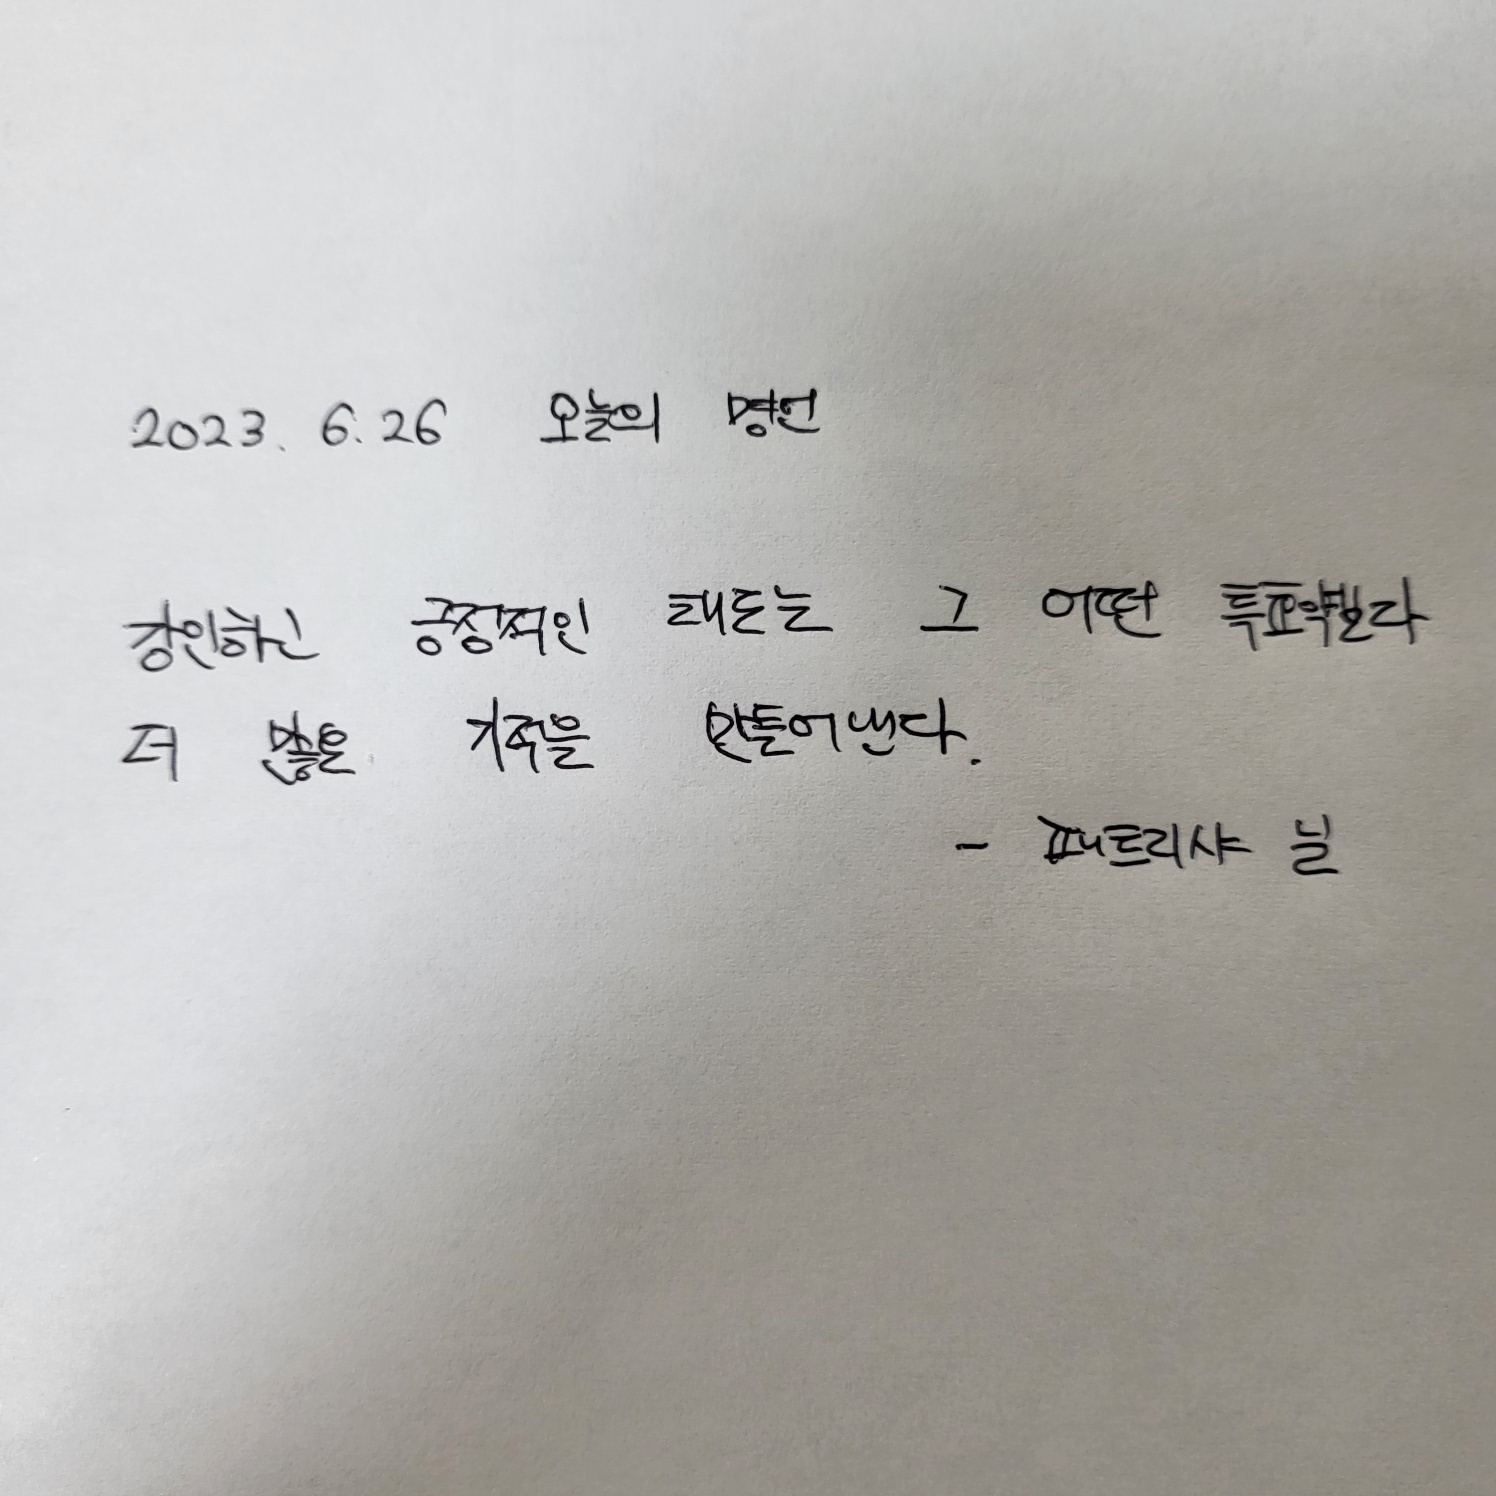 2023. 6. 26 오늘의 명언
강인한 긍정적인 태도는 그 어떤 특효약보다
더 많은 기적을 만들어낸다.
- 패트리샤 닐